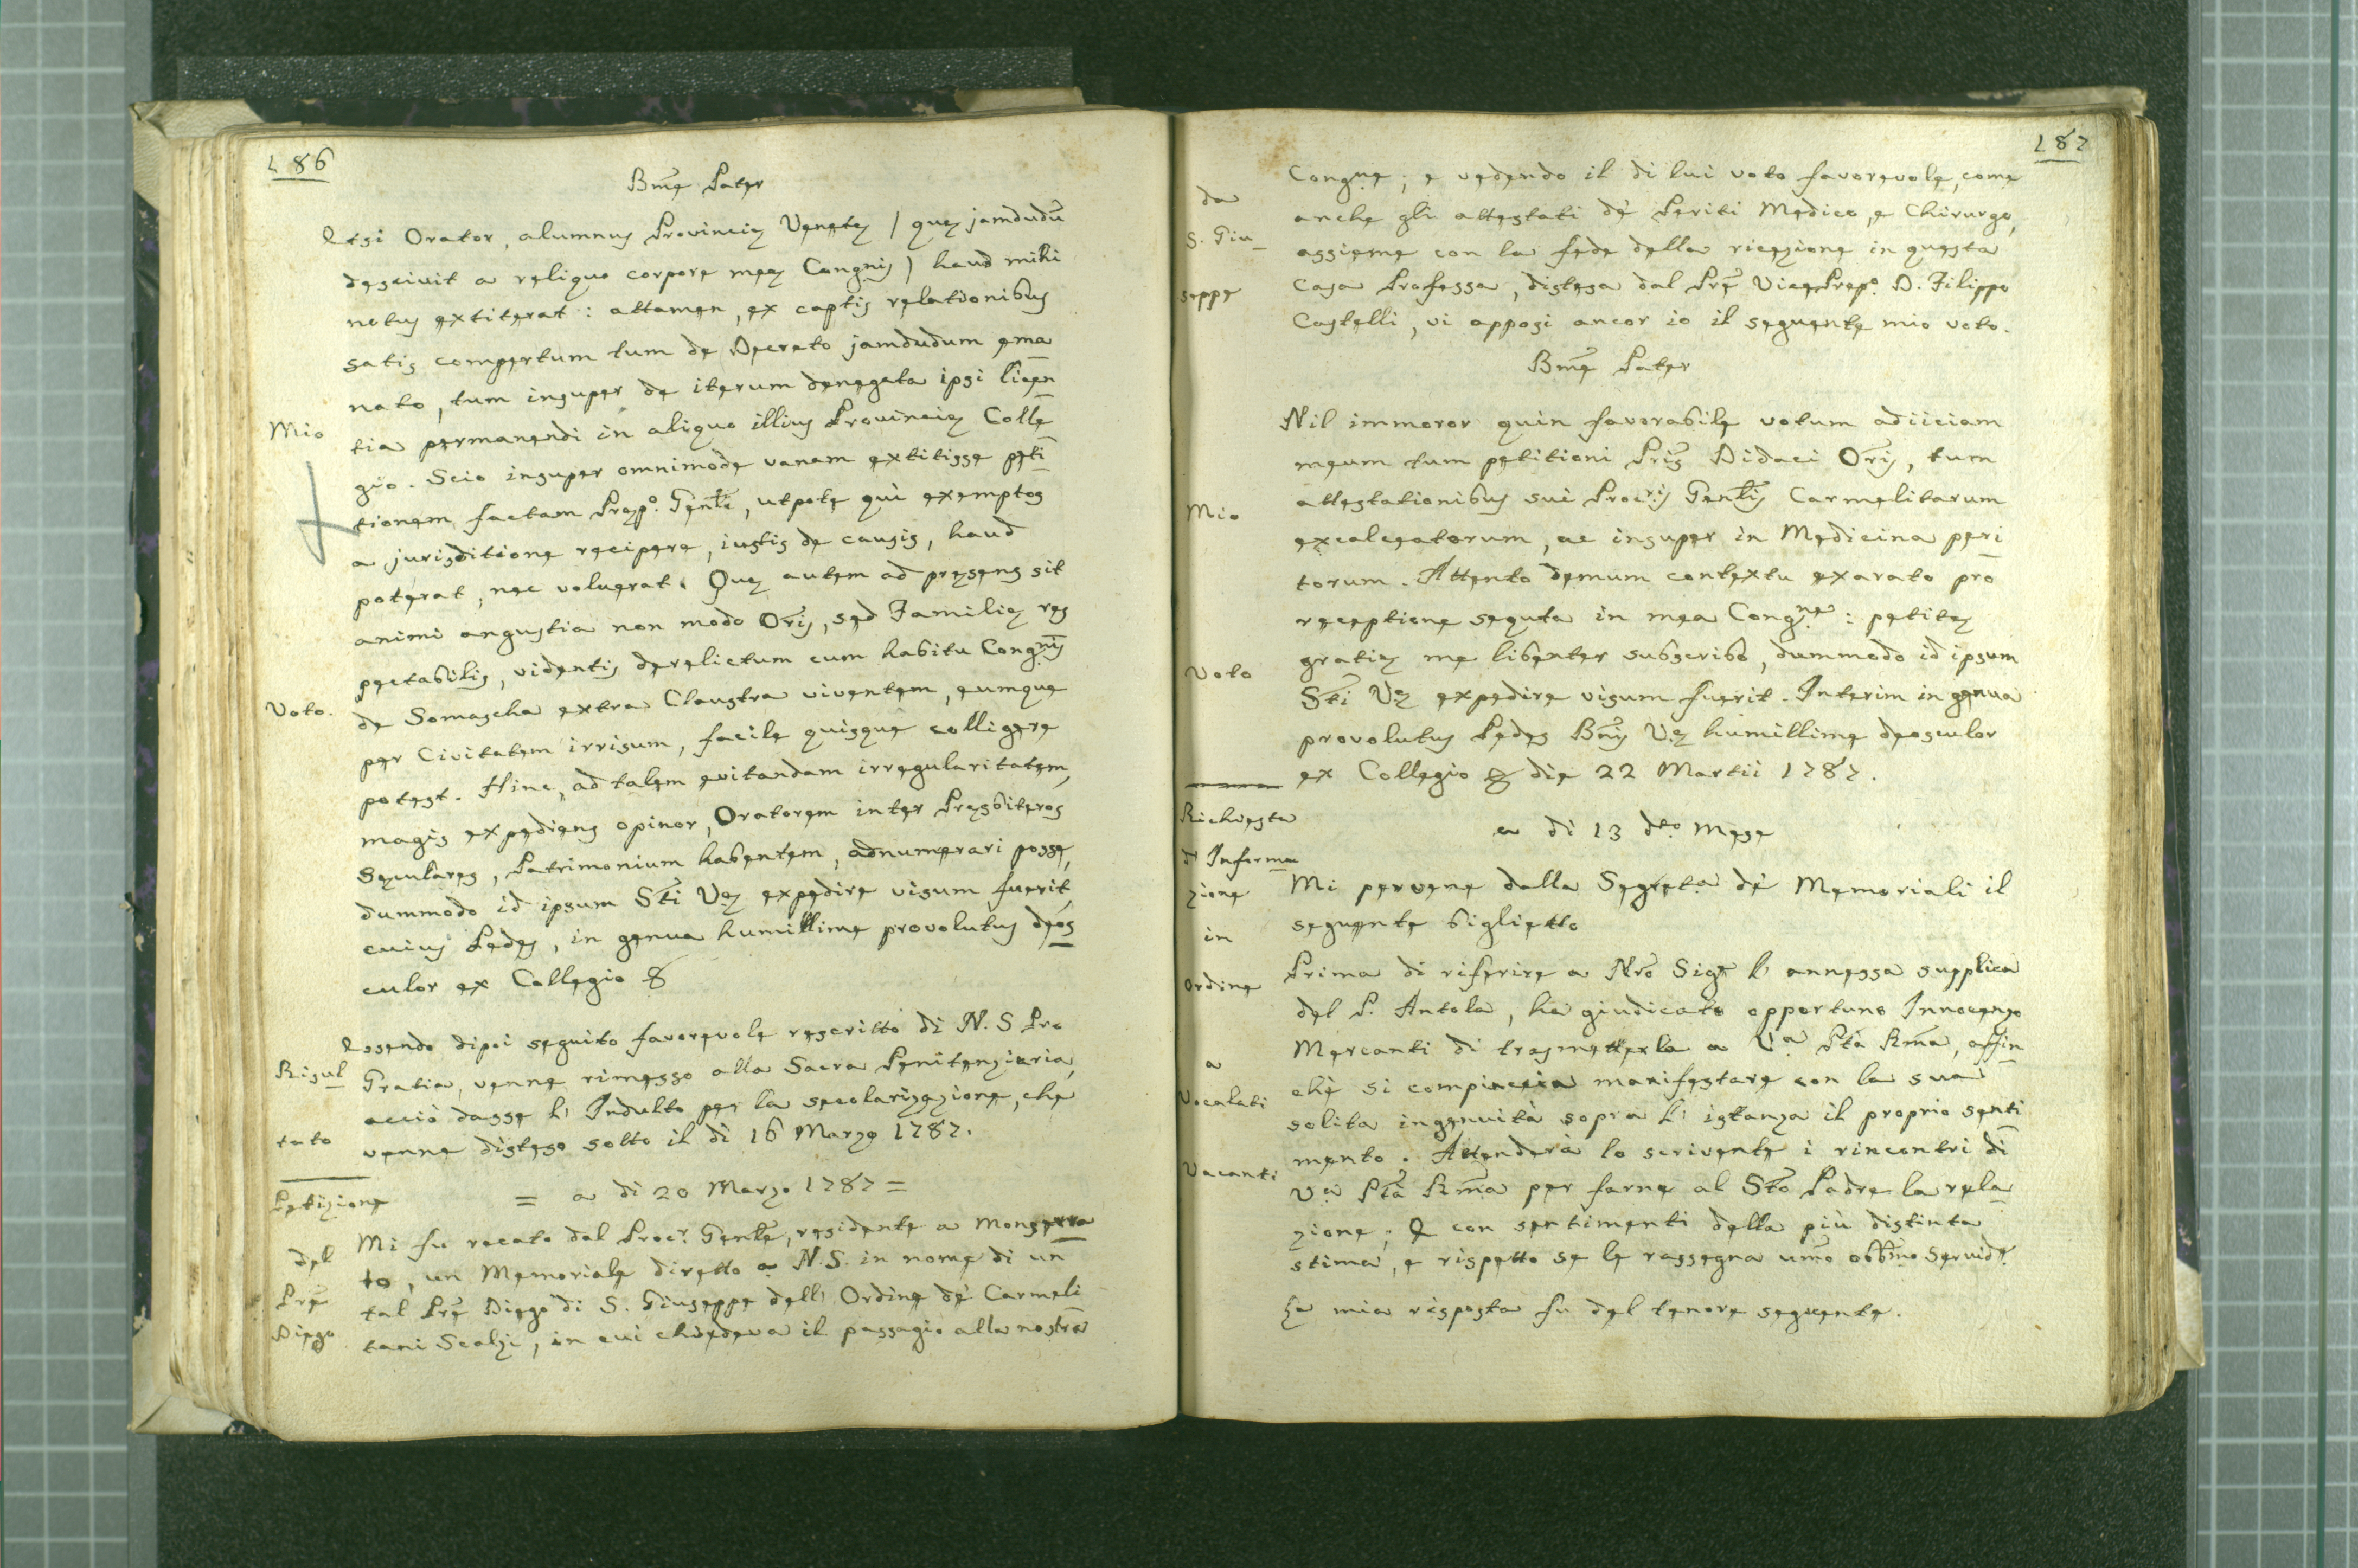 186
Bm̃e Pater
Etsi Orator, alumnus Provinciæ Venetæ / quæ jamdudũ
descivit a reliquo corpore meæ Congnis ) haud mihi
notus extiterat : attamen, ex captis relationibus
satis compertum tum de Decreto jamdudum ema
nato, tum insuper de iterum denegata ipsi licen
Mio
tia permanendi in aliquo illius Provinciæ Colle
gio. Scio insuper omnimode vanam extitisse peti
tionem factam Præpo. Genłi, utpote qui exemptos
a jurisditione recipere, iustis de causis, haud
poterat, nec voluerat. Quæ autem ad præsens sit
animi angustia non modo Oris, sed Familiæ res
pectabilis, videntis derelictum cum habitu Congnis
Voto.
de Somascha extra Claustra viventem, eumque
per Civitatem irrisum, facile quisque colligere
potest. Hinc, ad talem evitandam irregularitatem,
magis expediens opinor, Oratorem inter Præsbiteros
Sæculares, Patrimonium habentem, adnumerari posse,
dummodo id ipsum Sti Væ expedire visum fuerit,
cuius Pedes, in genua humillime provolutus deos
culor ex Collegio &
Essendo dipoi seguito favorevole rescritto di N. S Pro
Risul
Gratia, venne rimesso alla Sacra Penitenzieria,
acciò dasse l' Indulto per la secolarizazione, che
tato
venne disteso sotto il dì 16 Marzo 1787.
Petizione
= a di 20 Marzo 1787 =
Mi fu recato dal Procr. Genłe, residente a Monserra
del
to, un Memoriale diretto a N.S. in nome di un
Prẽ
tal Prẽ Diego di S. Giuseppe dell' Ordine de' Carmeli
Diego
tani Scalzi, in cui chiedeva il passagio alla nostra
187
Congne; e vedendo il di lui voto favorevole, come
da
anche gli attestati de' Periti Medico, e Chirurgo,
S. Giu_
assieme con la fede della ricezione in questa
seppe
Casa Professa, distesa dal Prẽ VicePrepo. D. Filippo
Castelli, vi apposi ancor io il seguente mio voto.
Bm̃e Pater
Nil immoror quin favorabile votum adiiciam
meum tum petitioni Pris Didaci Oris, tum
Mio
attestationibus sui Procris Genłis Carmelitarum
excalceatorum, ac insuper in Medicina peri
torum. Attento demum contextu exarato pro
receptione sequta in mea Congne : petitæ
Voto
gratiæ me libenter subscribo, dummodo id ipsum
Sti Væ expedire visum fuerit. Interim in genua
provolutus Pedes Bnis Væ humillime deosculor
ex Collegio & die 22 Martii 1787.
Richiesta
a di 13 dto. Mese
d' Informa
Mi pervene dalla Segreta de' Memoriali il
zione
seguente biglietto
in
Prima di riferire a Nro Sige l' annessa supplica
ordine
del P. Antola, ha giudicato opportuno Innocenzo
Mercanti di trasmetterla a Va Ptà Rma, affin
a
chè si compiaccia manifestare con la sua
Vocalati
solita ingenuità sopra l' istanza il proprio senti
mento. Attenderà lo scrivente i rincontri di
Vacanti
Va Ptà Rma per farne al Sto Padre la rela
zione; E con sentimenti della più distinta
stima, e rispetto se le rassegna umo obbmo Servidẽ.
La mia risposta fu del tenore seguente.